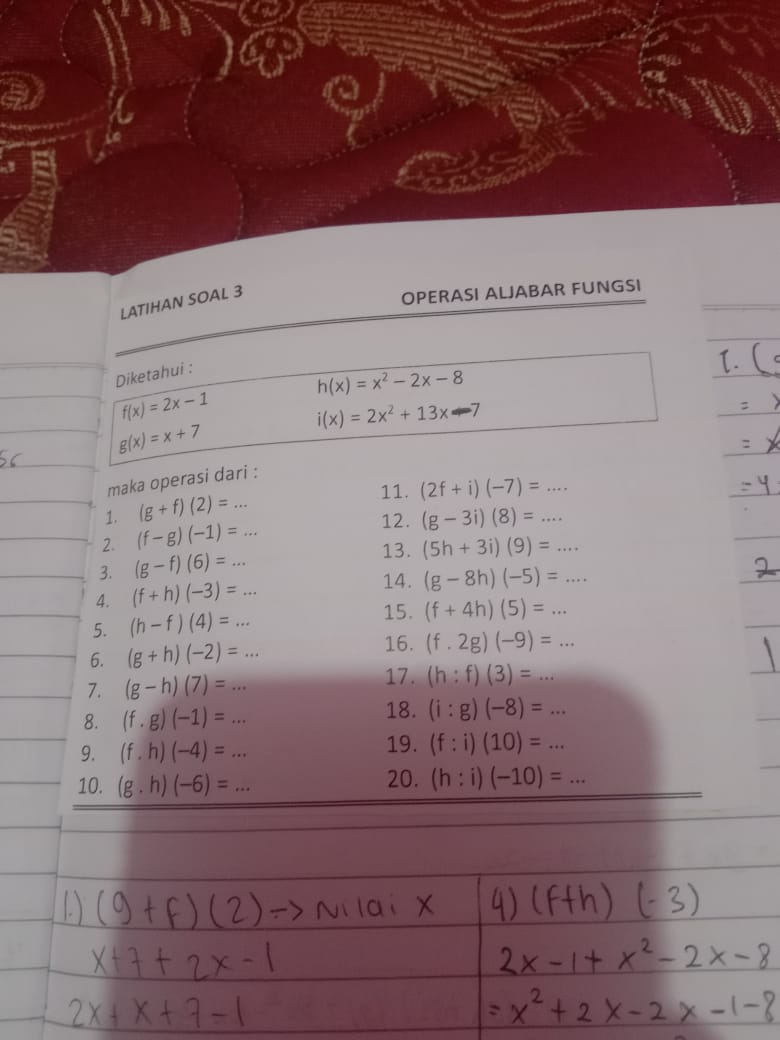 LATIHAN SOAL 3
OPERASI ALJABAR FUNGSI
Diketahui :
f(x) = 2x – 1
g(x) = x + 7
h(x) = x² – 2x – 8
i(x) = 2x² + 13x – 7
maka operasi dari :
1. (g + f) (2) = ...
2. (f – g) (–1) = ...
3. (g – f) (6) = ...
4. (f + h) (–3) = ...
5. (h – f ) (4) = ...
6. (g + h) (–2) = ...
7. (g – h) (7) = ...
8. (f . g) (–1) = ...
9. (f . h) (–4) = ...
10. (g . h) (–6) = ...
11. (2f + i) (–7) = ....
12. (g – 3i) (8) = ....
13. (5h + 3i) (9) = ....
14. (g – 8h) (–5) = ....
15. (f + 4h) (5) = ...
16. (f . 2g) (–9) = ...
17. (h : f) (3) = ...
18. (i : g) (–8) = ...
19. (f : i) (10) = ...
20. (h : i) (–10) = ...
1.) (g + f) (2) -> Nilai x
x + 7 + 2x - 1
2x + x + 7 - 1
4) (f+h) (-3)
2x - 1 + x² - 2x - 8
= x² + 2x - 2x - 1 - 8
1. (
=
=
= 4
2
1